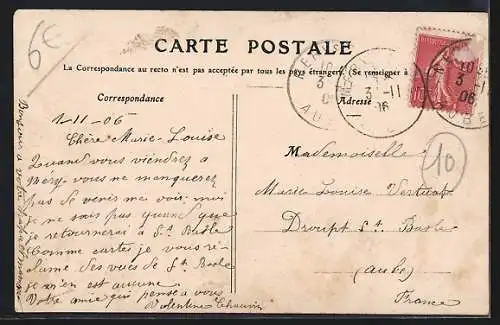 6€
CARTE POSTALE
La Correspondance au recto n'est pas acceptée par tous les pays étrangers. (Se renseigner à
Correspondance
Adresse
1-11-06
Chère Marie-Louise
Quand vous viendrez à
Méry vous ne manquerez
pas de venir me voir; moi
je ne sais pas quand que
je retournerai à St Basle
Comme cartes je vous ré-
clame des vues de St Basle
je n'en est aucune.
Votre amie qui pense à vous
Valentine Chauvin
Bonjour à votre
Mademoiselle
Marie Louise
Droupt St. Basle
(Aube)
France
10
3 -11
06
AUBE
10